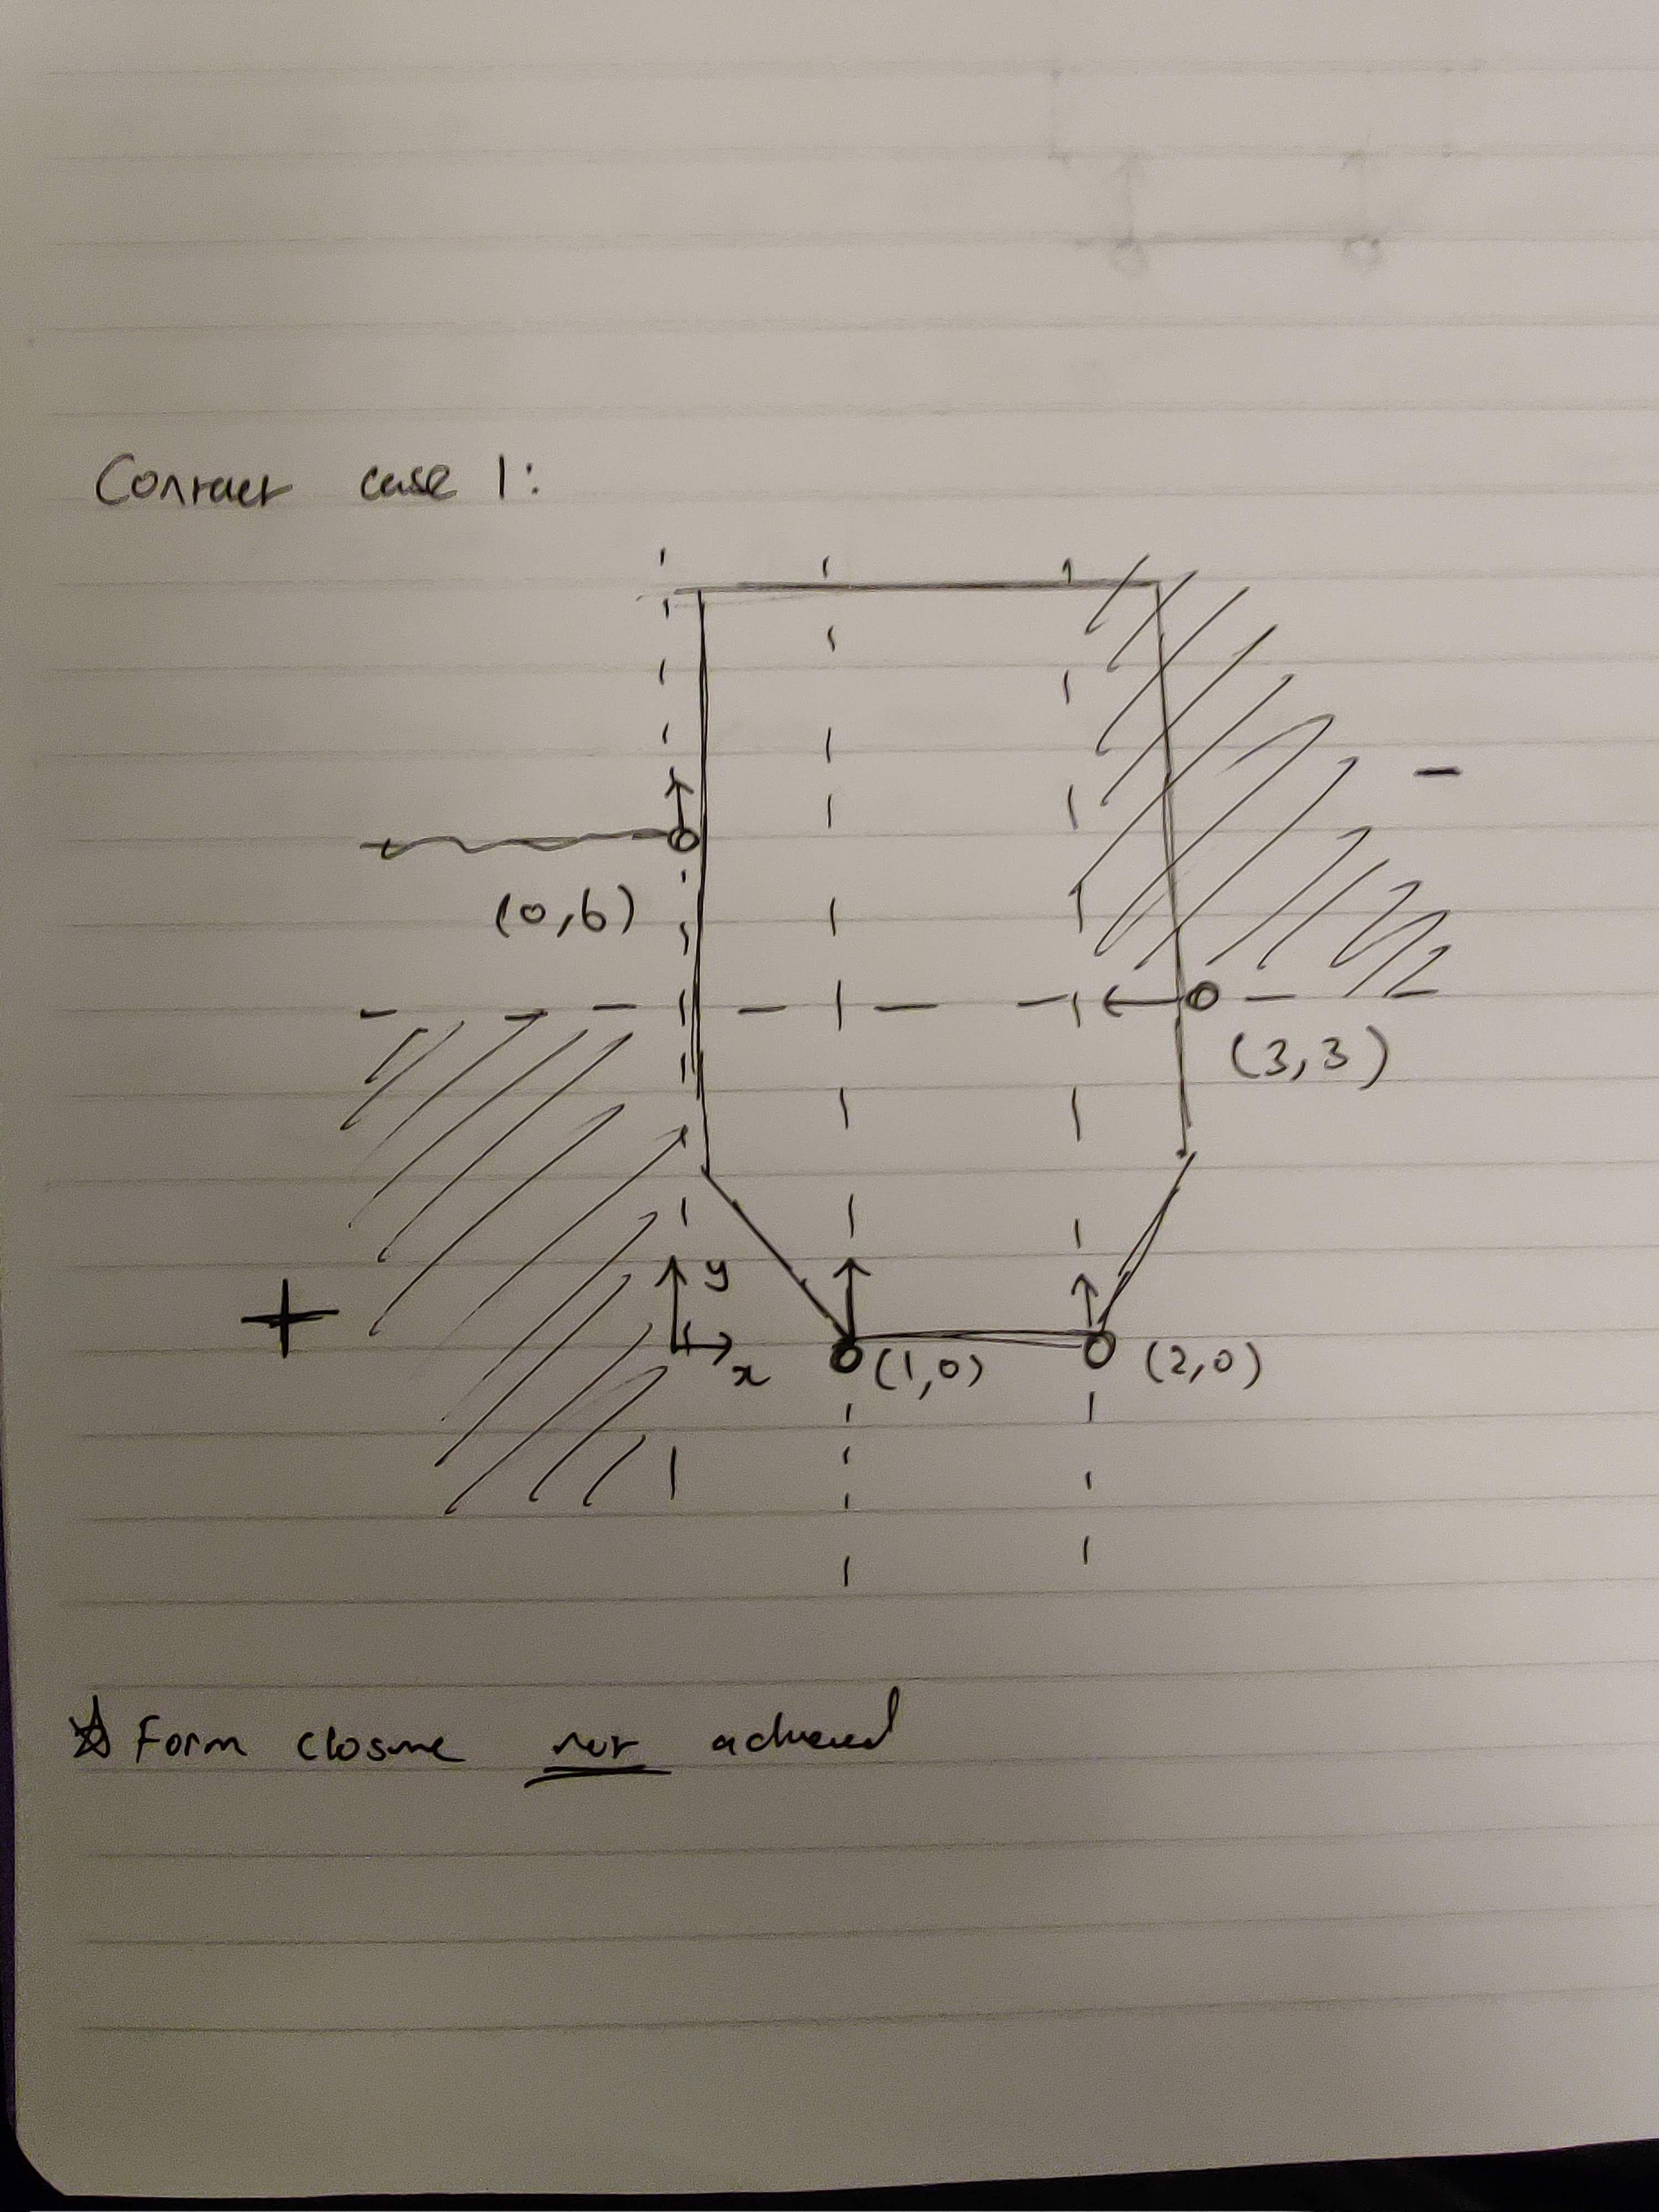 Contact case 1:
-
(0,6)
(3,3)
+
y
x
(1,0)
(2,0)
☆ Form closure not achieved